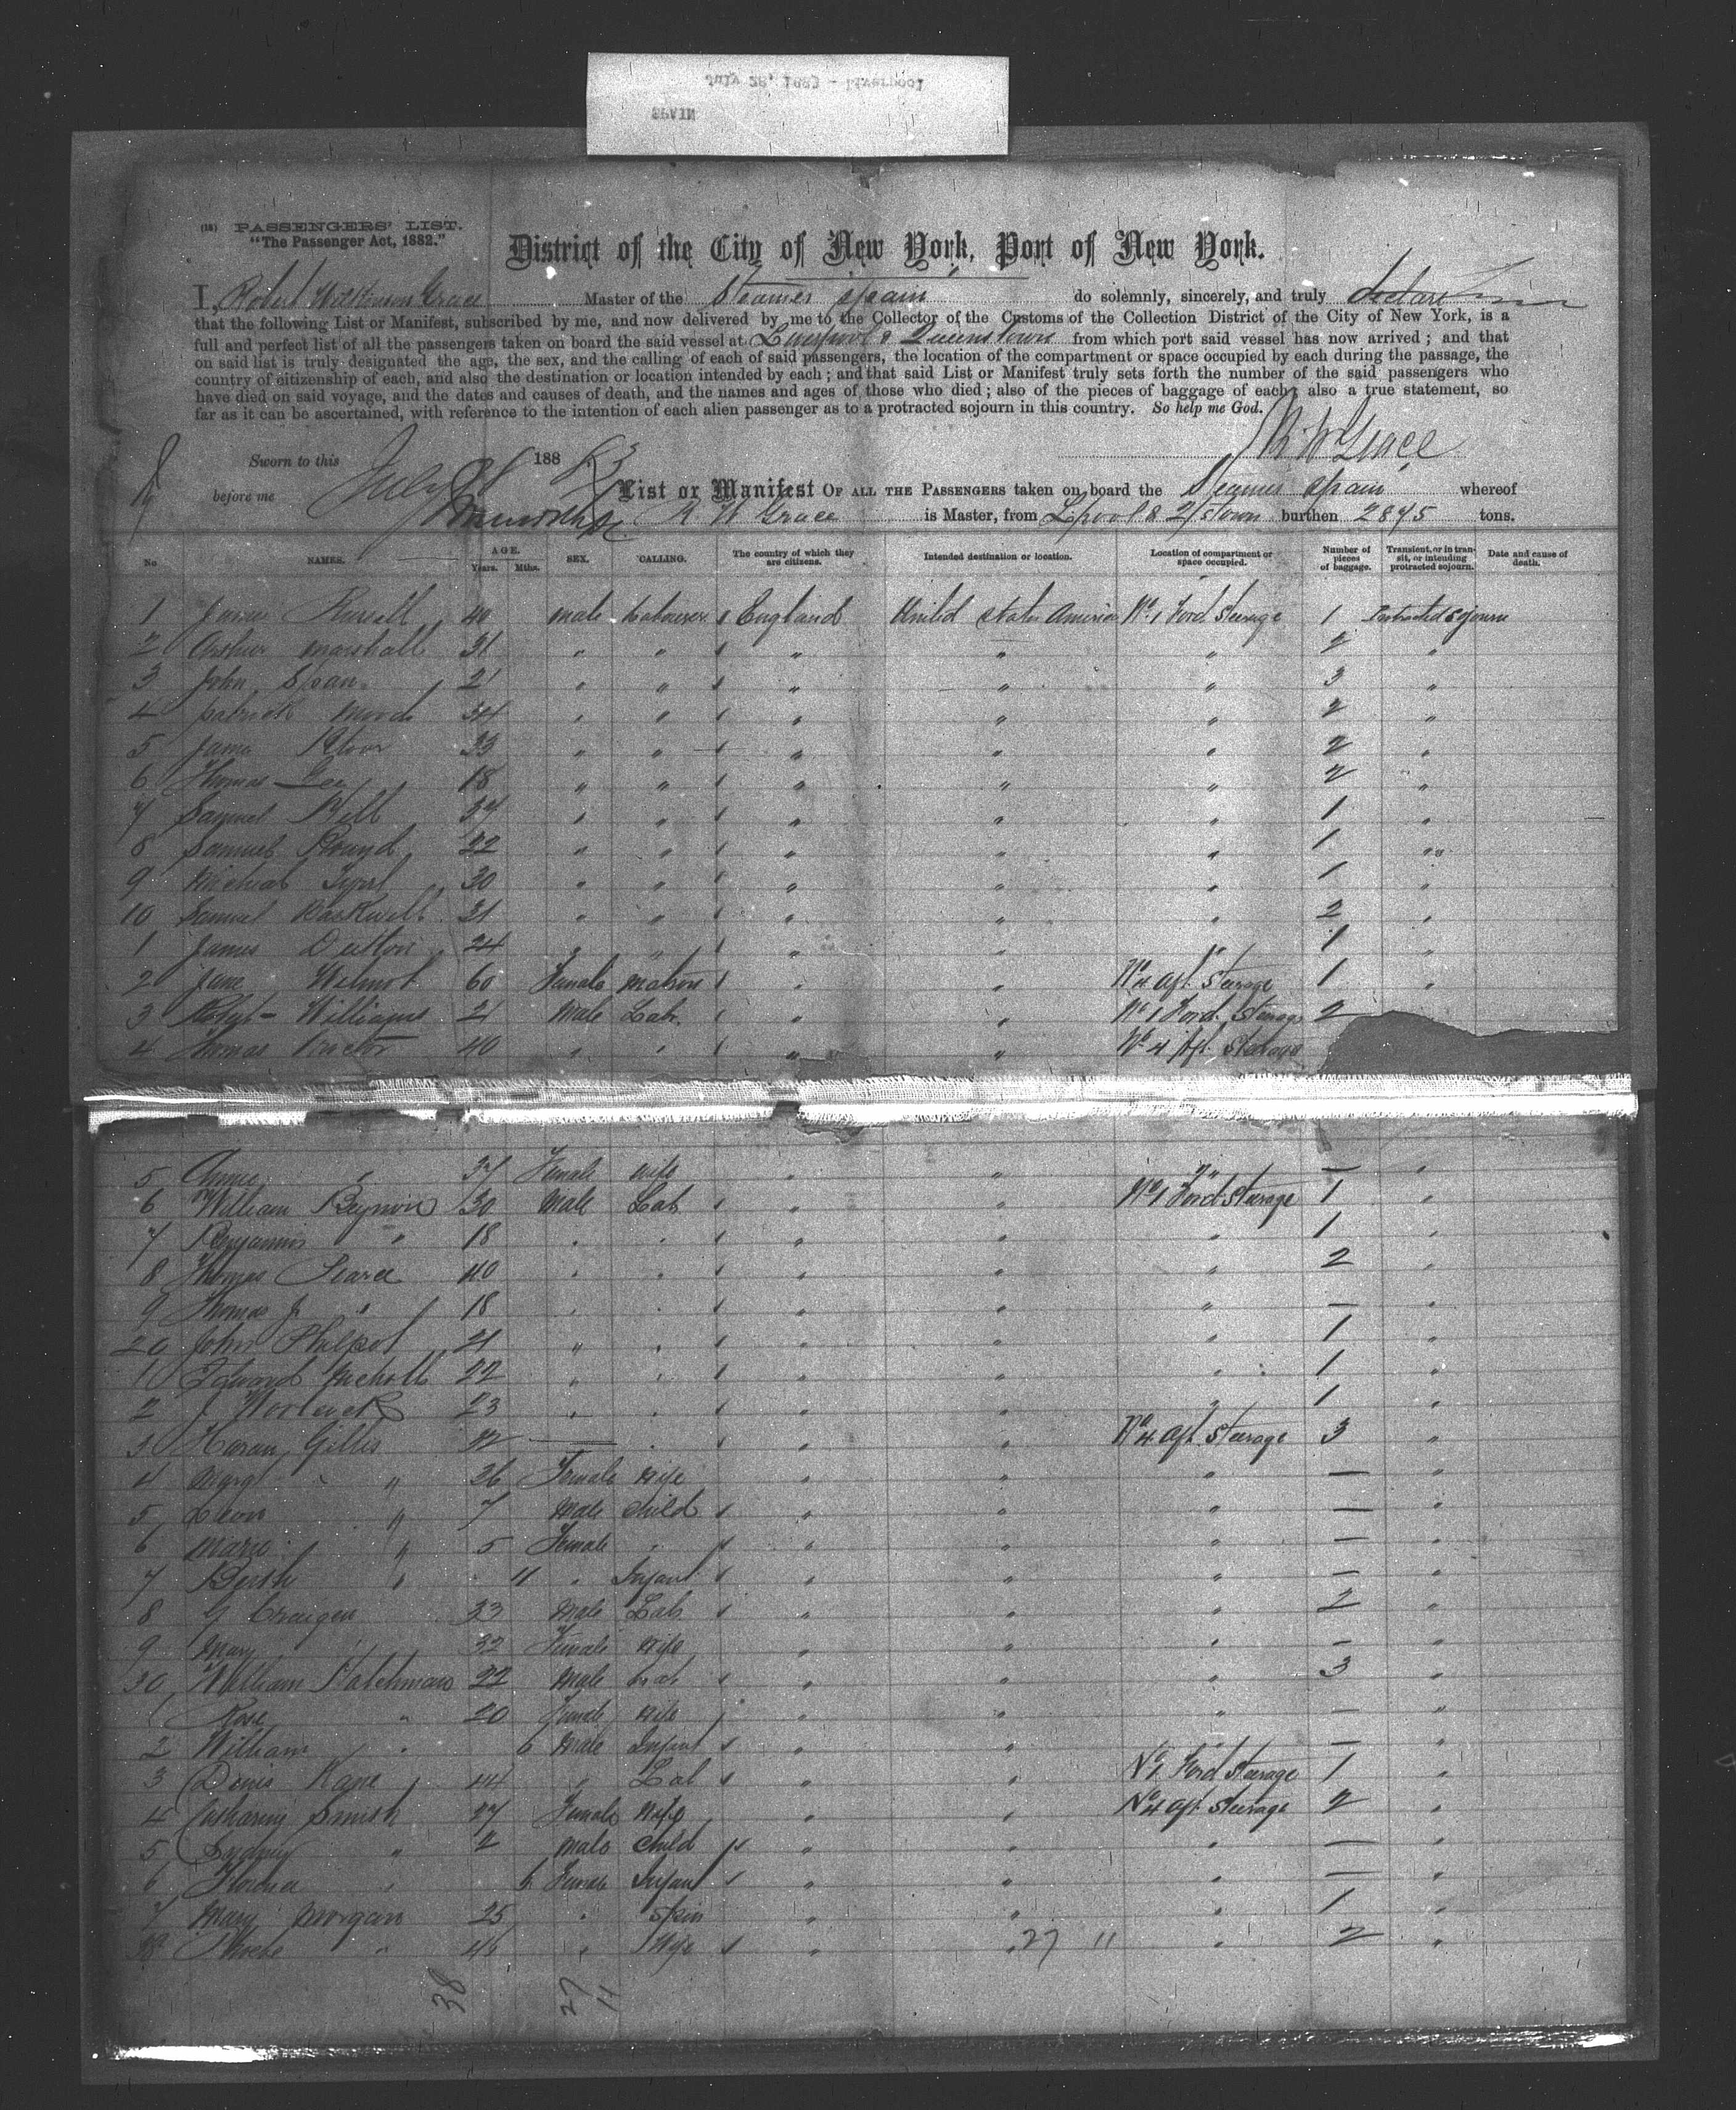 July 28, 1883 - Liverpool
SPAIN
(18) PASSENGERS' LIST.
"The Passenger Act, 1882."
District of the City of New York, Port of New York.
I, Robert Wilkinson Grace Master of the Steamer Spain do solemnly, sincerely, and truly declare
that the following List or Manifest, subscribed by me, and now delivered by me to the Collector of the Customs of the Collection District of the City of New York, is a
full and perfect list of all the passengers taken on board the said vessel at Liverpool & Queenstown from which port said vessel has now arrived; and that
on said list is truly designated the age, the sex, and the calling of each of said passengers, the location of the compartment or space occupied by each during the passage, the
country of citizenship of each, and also the destination or location intended by each; and that said List or Manifest truly sets forth the number of the said passengers who
have died on said voyage, and the dates and causes of death, and the names and ages of those who died; also of the pieces of baggage of each; also a true statement, so
far as it can be ascertained, with reference to the intention of each alien passenger as to a protracted sojourn in this country. So help me God.
Sworn to this July 188 83 R W Grace
before me List or Manifest OF ALL THE PASSENGERS taken on board the Steamer Spain whereof
R W Grace is Master, from Lpool & Q/stown burthen 2845 tons.
No NAMES. AGE. Years. Mths. SEX. CALLING. The country of which they are citizens. Intended destination or location. Location of compartment or space occupied. Number of pieces of baggage. Transient, or in transit, or intending protracted sojourn. Date and cause of death.
1 James Russell 40 Male Labourer England United States America No 1 Ford Steerage 1 Protracted Sojourn
2 Arthur Marshall 31 " " " " " 2 "
3 John 21 " " " " " 3 "
4 Patrick 34 " " " " " 2 "
5 33 " " " " " 2 "
6 Thomas Lee 18 " " " " " 2 "
7 Samuel 37 " " " " " 1 "
8 Samuel Round 22 " " " " " 1 "
9 Michael 30 " " " " " 1 "
10 Samuel 31 " " " " " 2 "
1 James Dutton 24 " " " " " 1 "
2 Jane Wilmot 60 Female Matron " " No 4 Aft Steerage 1 "
3 Williams 21 Male Lab. " " No 1 Ford. Steerage 2
4 Thomas Proctor 40 " " " " No 4 Aft. Steerage
5 " 37 Female Wife " " " — "
6 William Beynon 30 Male Lab " " No 1 Ford Steerage 1 "
7 Benjamin " 18 " " " " " 1 "
8 Thomas Pearce 40 " " " " " 2 "
9 Thomas Jr " 18 " " " " " — "
20 John Philpot 21 " " " " " 1 "
1 Edward Nicholls 22 " " " " " 1 "
2 J 23 " " " " " 1 "
3 Gillis 32 — " " " No 4 Aft Steerage 3 "
4 Margt " 26 Female Wife " " " — "
5 Leon " 7 Male Child " " " — "
6 Marie " 5 Female " " " " — "
7 " 11 " Infant " " " — "
8 G 33 Male Lab " " " 2 "
9 Mary " 32 Female Wife " " " — "
30 William 22 Male Lab " " " 3 "
1 Rose " 20 Female Wife " " " — "
2 William " 6 Male Infant " " " — "
3 Denis Kane 44 " Lab " " No 1 Ford Steerage 1 "
4 Catharine Smith 27 Female Wife " " No 4 Aft Steerage 2 "
5 Sydney " 2 Male Child " " " — "
6 Florence " 6 Female Infant " " " — "
7 Mary Morgan 25 " Spin " " " 1 "
38 Phoebe " 46 " Wife " " 27 11 " 2 "
38 27 11